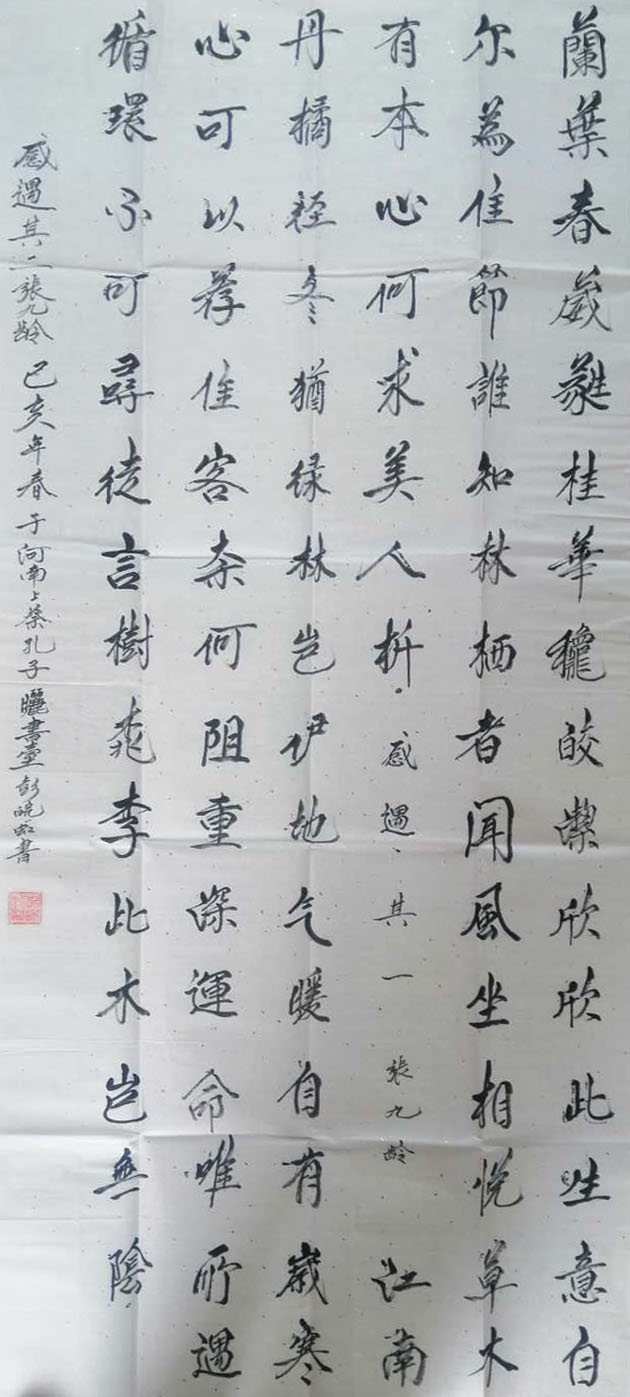 蘭葉春葳蕤桂華穠皎絜欣欣此生意自
尔為佳節誰知林栖者聞風坐相悦草木
有本心何求美人折 感遇、其一 張九龄 江南
丹橘經冬猶绿林岂伊地气暖自有歲寒
心可以荐佳客柰何阻重深運命唯所遇
循環不可尋徒言樹桃李此木岂無陰
感遇其二張九龄 己亥年春于河南上蔡孔子曬書臺彭書